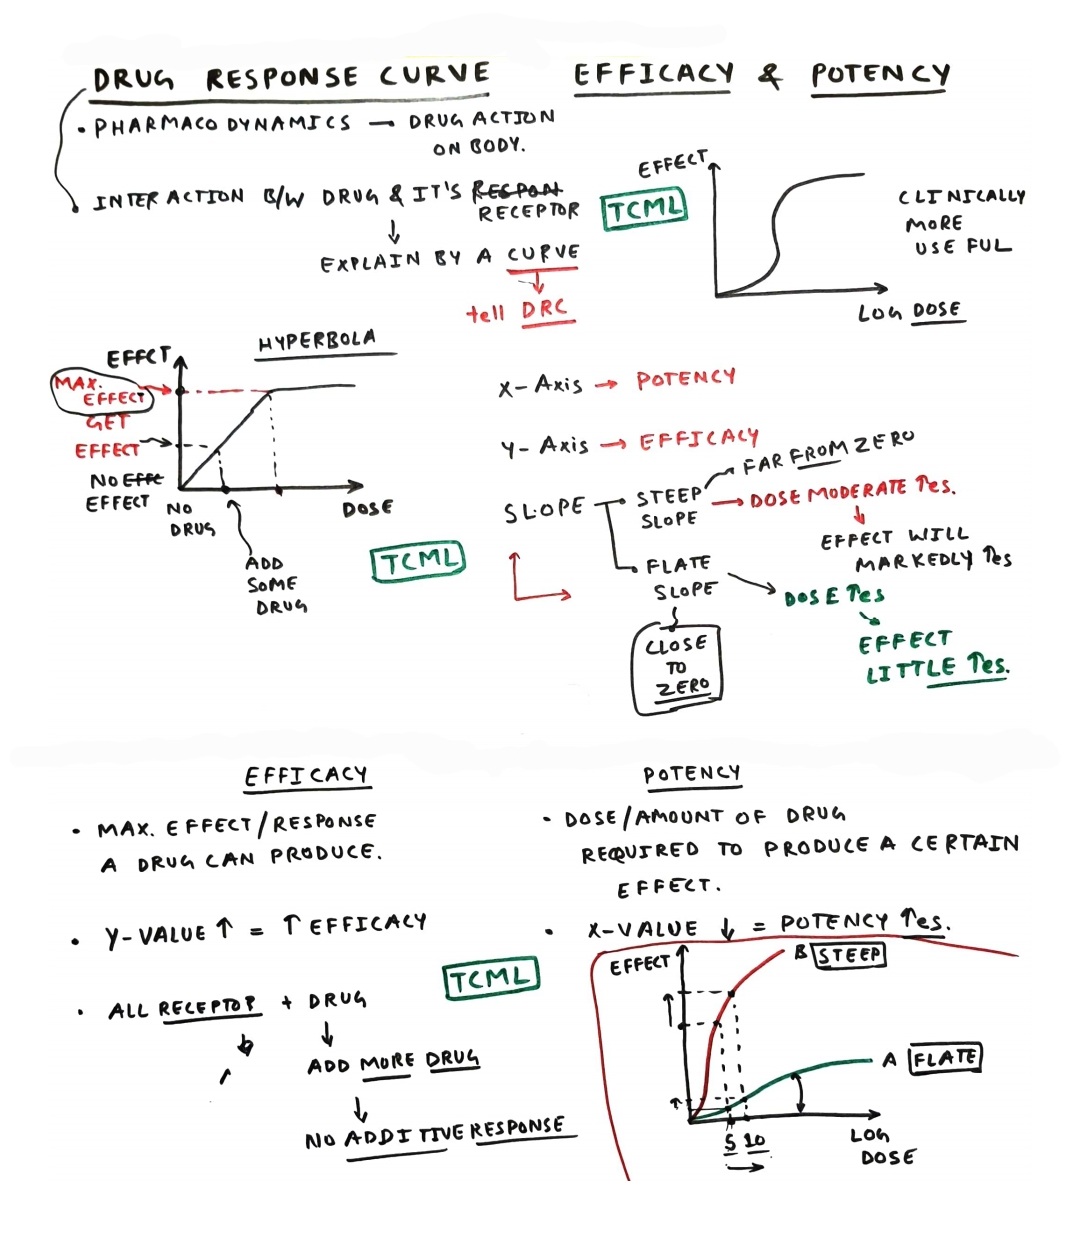 DRUG RESPONSE CURVE
EFFICACY & POTENCY
• PHARMACO DYNAMICS — DRUG ACTION
ON BODY.
INTERACTION B/W DRUG & IT'S RESPON
RECEPTOR
↓
EXPLAIN BY A CURVE
↓
tell DRC
TCML
EFFECT
CLINICALLY
MORE
USE FUL
LOG DOSE
HYPERBOLA
EFFCT
MAX.
EFFECT
GET
EFFECT
NO EFFE
EFFECT
NO
DRUG
DOSE
ADD
SOME
DRUG
TCML
X-Axis → POTENCY
Y-Axis → EFFICACY
SLOPE
STEEP
SLOPE
FAR FROM ZERO
→ DOSE MODERATE ↑es.
↓
EFFECT WILL
MARKEDLY ↑es
FLATE
SLOPE
DOSE ↑es
EFFECT
LITTLE ↑es.
CLOSE
TO
ZERO
EFFICACY
• MAX. EFFECT/RESPONSE
A DRUG CAN PRODUCE.
• Y-VALUE ↑ = ↑ EFFICACY
TCML
• ALL RECEPTOR + DRUG
↓
ADD MORE DRUG
↓
NO ADDITIVE RESPONSE
POTENCY
• DOSE/AMOUNT OF DRUG
REQUIRED TO PRODUCE A CERTAIN
EFFECT.
• X-VALUE ↓ = POTENCY ↑es.
EFFECT
B STEEP
A FLATE
5 10
LOG
DOSE